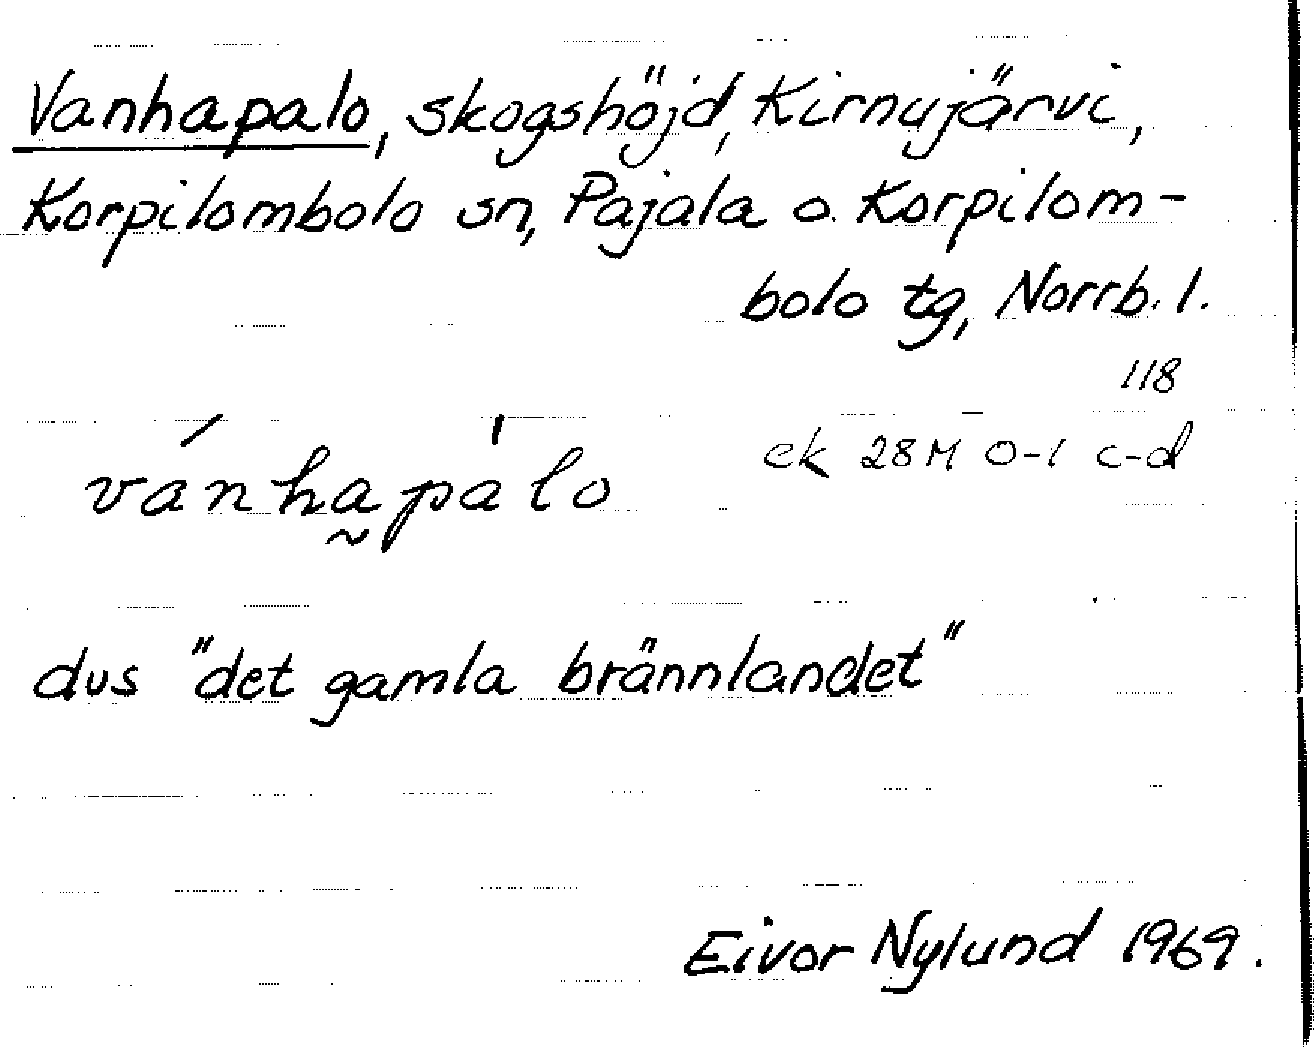 Vanhapalo, skogshöjd, Kirnujärvi,
Korpilombolo sn, Pajala o. Korpilom-
bolo tg, Norrb. l.
118
ek 28M 0-1 c-d
vánha̰pàlo
dvs "det gamla brännlandet"
Eivor Nylund 1969.